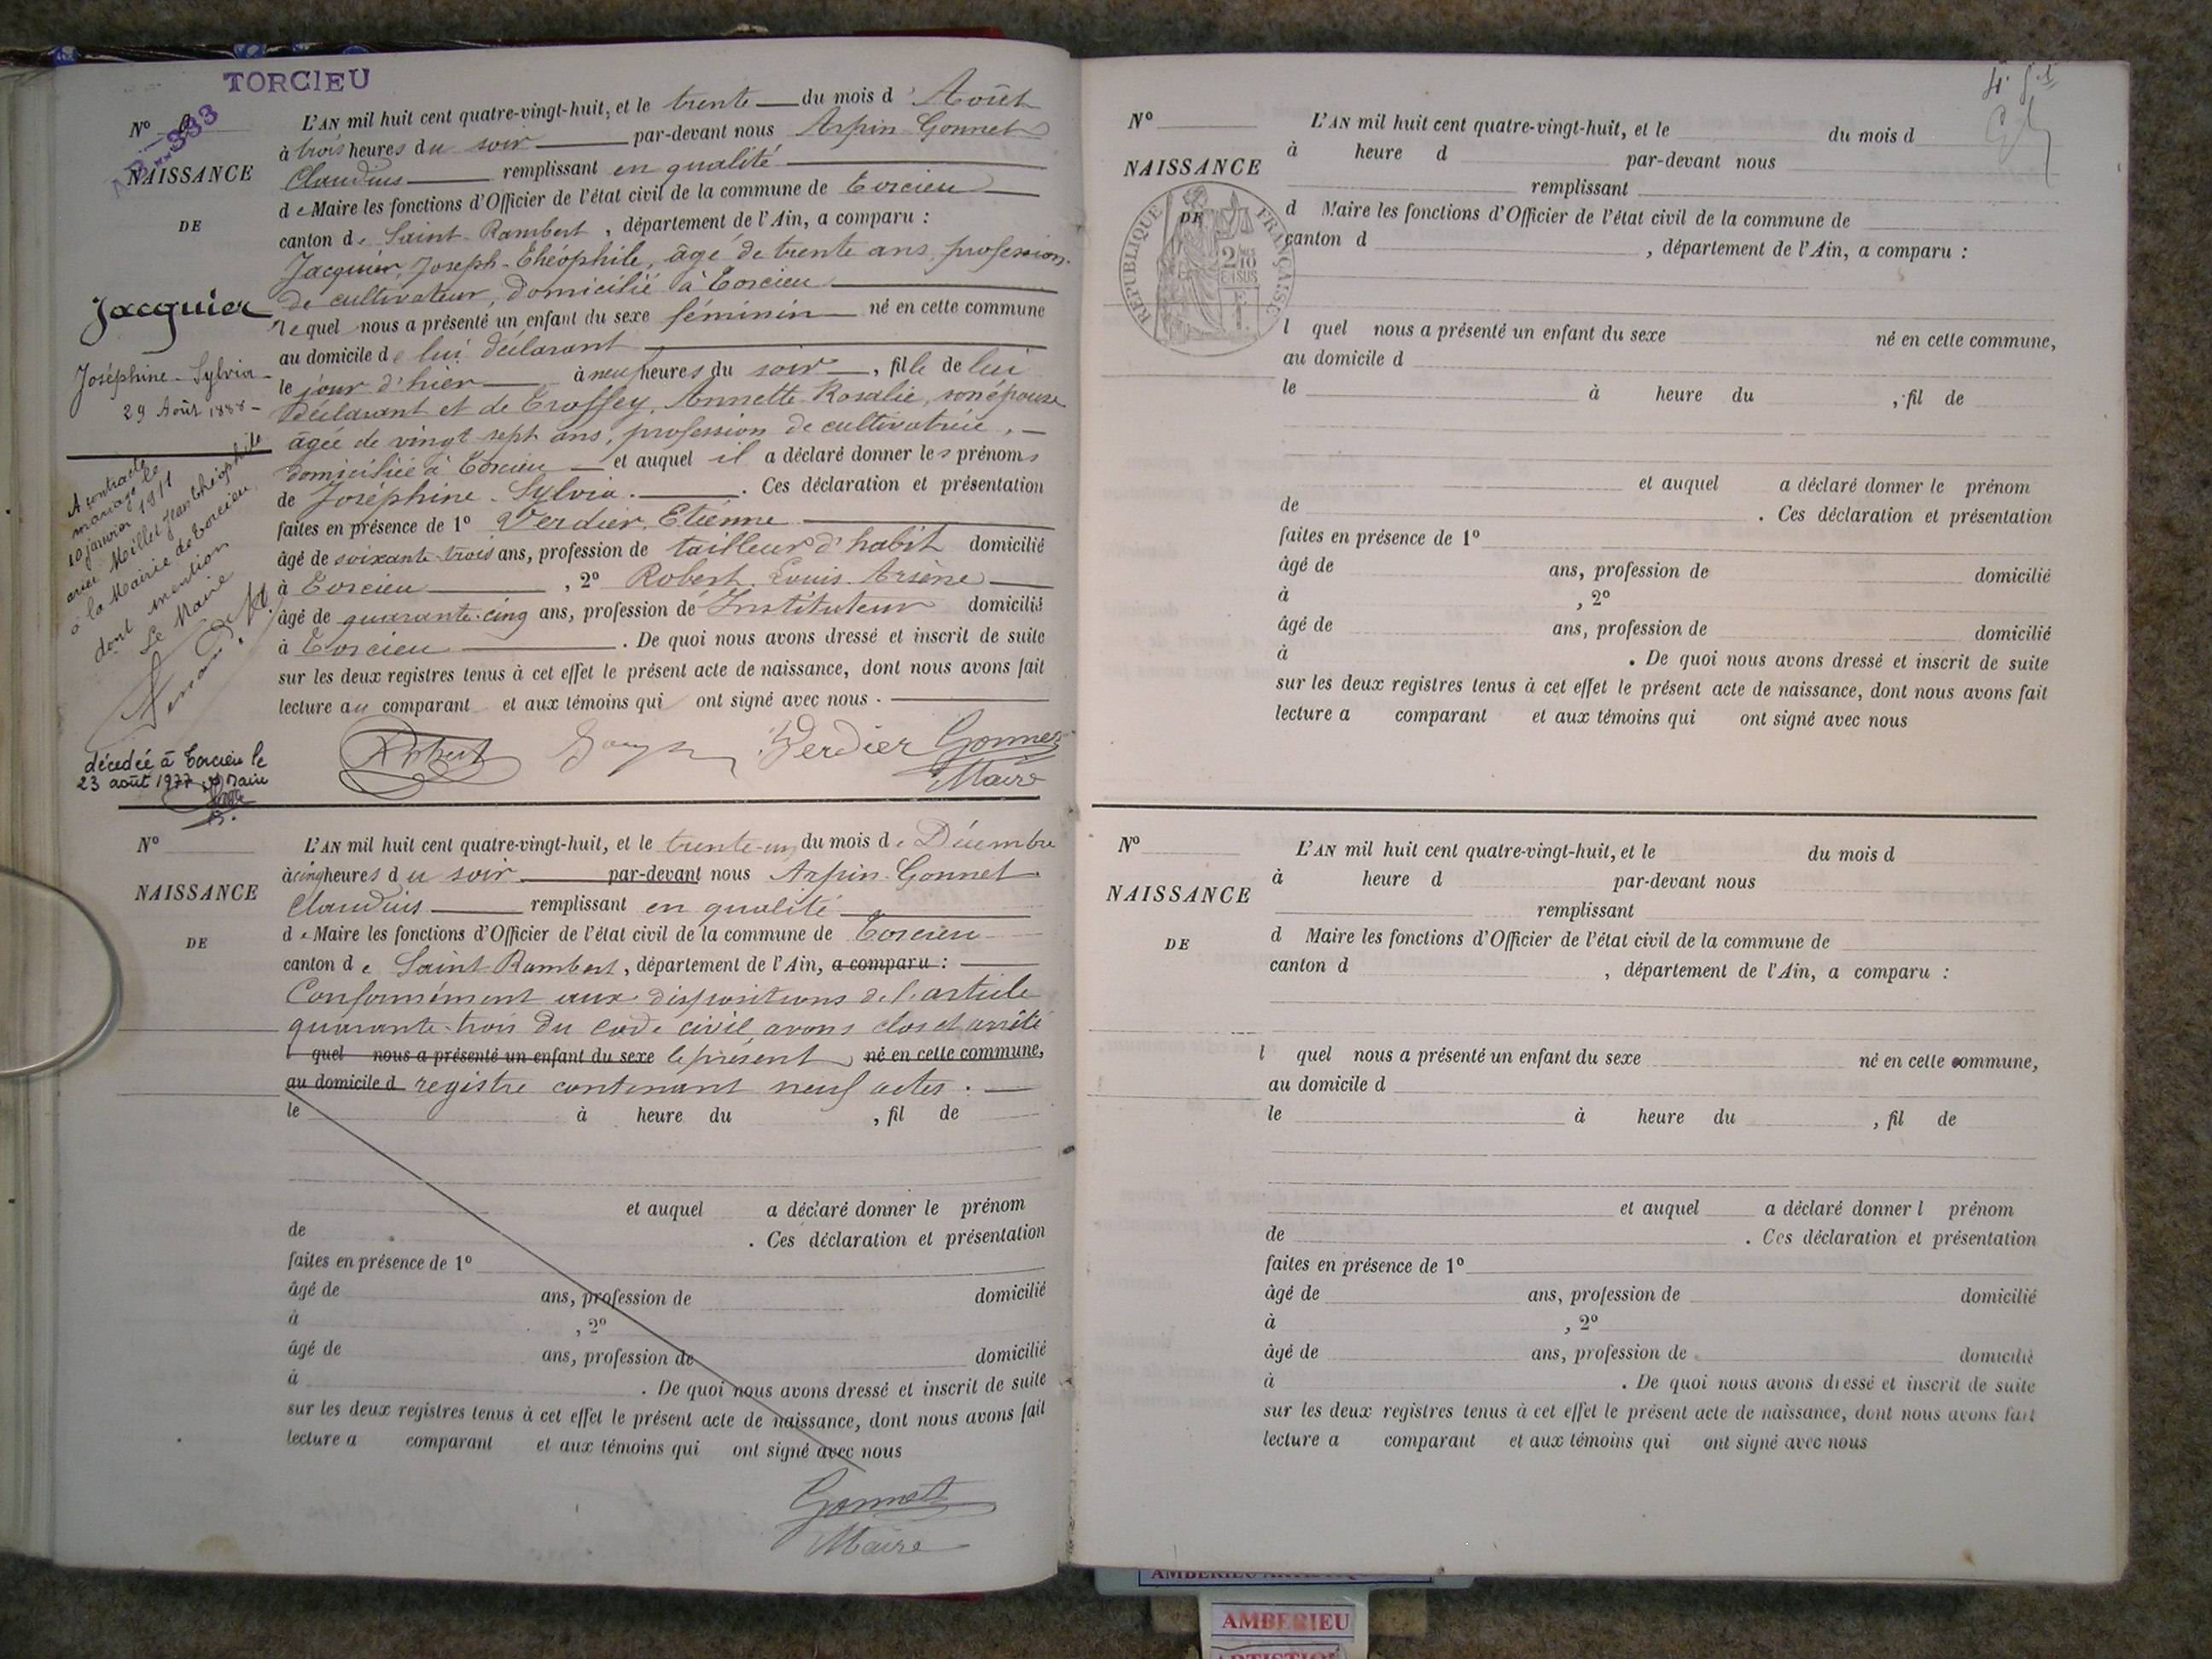 TORCIEU
N°
NAISSANCE
DE
Jacquier
Joséphine - Sylvia -
29 Août 1888 -
A contracté
mariage le
10 janvier 1911
avec Millet Jean Théophile
à la Mairie de Torcieu
dont mention
Le Maire
décédée à Torcieu le
23 août 1977 Maire
L'AN mil huit cent quatre-vingt-huit, et le trente du mois d' Août
à trois heures du soir par-devant nous Arpin-Gonnet
Claudius remplissant en qualité
de Maire les fonctions d'Officier de l'état civil de la commune de Torcieu
canton de Saint-Rambert, département de l'Ain, a comparu :
Jacquier, Joseph-Théophile, âgé de trente ans, profession
de cultivateur, domicilié à Torcieu
lequel nous a présenté un enfant du sexe féminin né en cette commune
au domicile de lui déclarant
le jour d'hier à neuf heures du soir, fille de lui
déclarant et de Troffey, Annette-Rosalie, son épouse
âgée de vingt sept ans, profession de cultivatrice,
domiciliée à Torcieu et auquel il a déclaré donner les prénoms
de Joséphine-Sylvia. Ces déclaration et présentation
faites en présence de 1° Verdier, Etienne
âgé de soixante-trois ans, profession de tailleur d'habit domicilié
à Torcieu, 2° Robert, Louis Arsène
âgé de quarante-cinq ans, profession de Instituteur domicilié
à Torcieu. De quoi nous avons dressé et inscrit de suite
sur les deux registres tenus à cet effet le présent acte de naissance, dont nous avons fait
lecture au comparant et aux témoins qui ont signé avec nous.
Robert Verdier Gonnet
Maire
N°
NAISSANCE
DE
L'AN mil huit cent quatre-vingt-huit, et le trente-un du mois de Décembre
à cinq heures du soir par-devant nous Arpin-Gonnet
Claudius remplissant en qualité
de Maire les fonctions d'Officier de l'état civil de la commune de Torcieu
canton de Saint-Rambert, département de l'Ain, a comparu :
Conformément aux dispositions de l'article
quarante-trois du code civil, avons clos et arrêté
l quel nous a présenté un enfant du sexe le présent né en cette commune,
au domicile d registre contenant neuf actes.
le à heure du , fil de
et auquel a déclaré donner le prénom
de . Ces déclaration et présentation
faites en présence de 1°
âgé de ans, profession de domicilié
à , 2°
âgé de ans, profession de domicilié
à . De quoi nous avons dressé et inscrit de suite
sur les deux registres tenus à cet effet le présent acte de naissance, dont nous avons fait
lecture a comparant et aux témoins qui ont signé avec nous
Gonnet
Maire
N°
NAISSANCE
DE
RÉPUBLIQUE FRANÇAISE
L'AN mil huit cent quatre-vingt-huit, et le du mois d
à heure d par-devant nous
remplissant
d Maire les fonctions d'Officier de l'état civil de la commune de
canton d , département de l'Ain, a comparu :
l quel nous a présenté un enfant du sexe né en cette commune,
au domicile d
le à heure du , fil de
et auquel a déclaré donner le prénom
de . Ces déclaration et présentation
faites en présence de 1°
âgé de ans, profession de domicilié
à , 2°
âgé de ans, profession de domicilié
à . De quoi nous avons dressé et inscrit de suite
sur les deux registres tenus à cet effet le présent acte de naissance, dont nous avons fait
lecture a comparant et aux témoins qui ont signé avec nous
N°
NAISSANCE
DE
L'AN mil huit cent quatre-vingt-huit, et le du mois d
à heure d par-devant nous
remplissant
d Maire les fonctions d'Officier de l'état civil de la commune de
canton d , département de l'Ain, a comparu :
l quel nous a présenté un enfant du sexe né en cette commune,
au domicile d
le à heure du , fil de
et auquel a déclaré donner l prénom
de . Ces déclaration et présentation
faites en présence de 1°
âgé de ans, profession de domicilié
à , 2°
âgé de ans, profession de domicilié
à . De quoi nous avons dressé et inscrit de suite
sur les deux registres tenus à cet effet le présent acte de naissance, dont nous avons fait
lecture a comparant et aux témoins qui ont signé avec nous
AMBERIEU